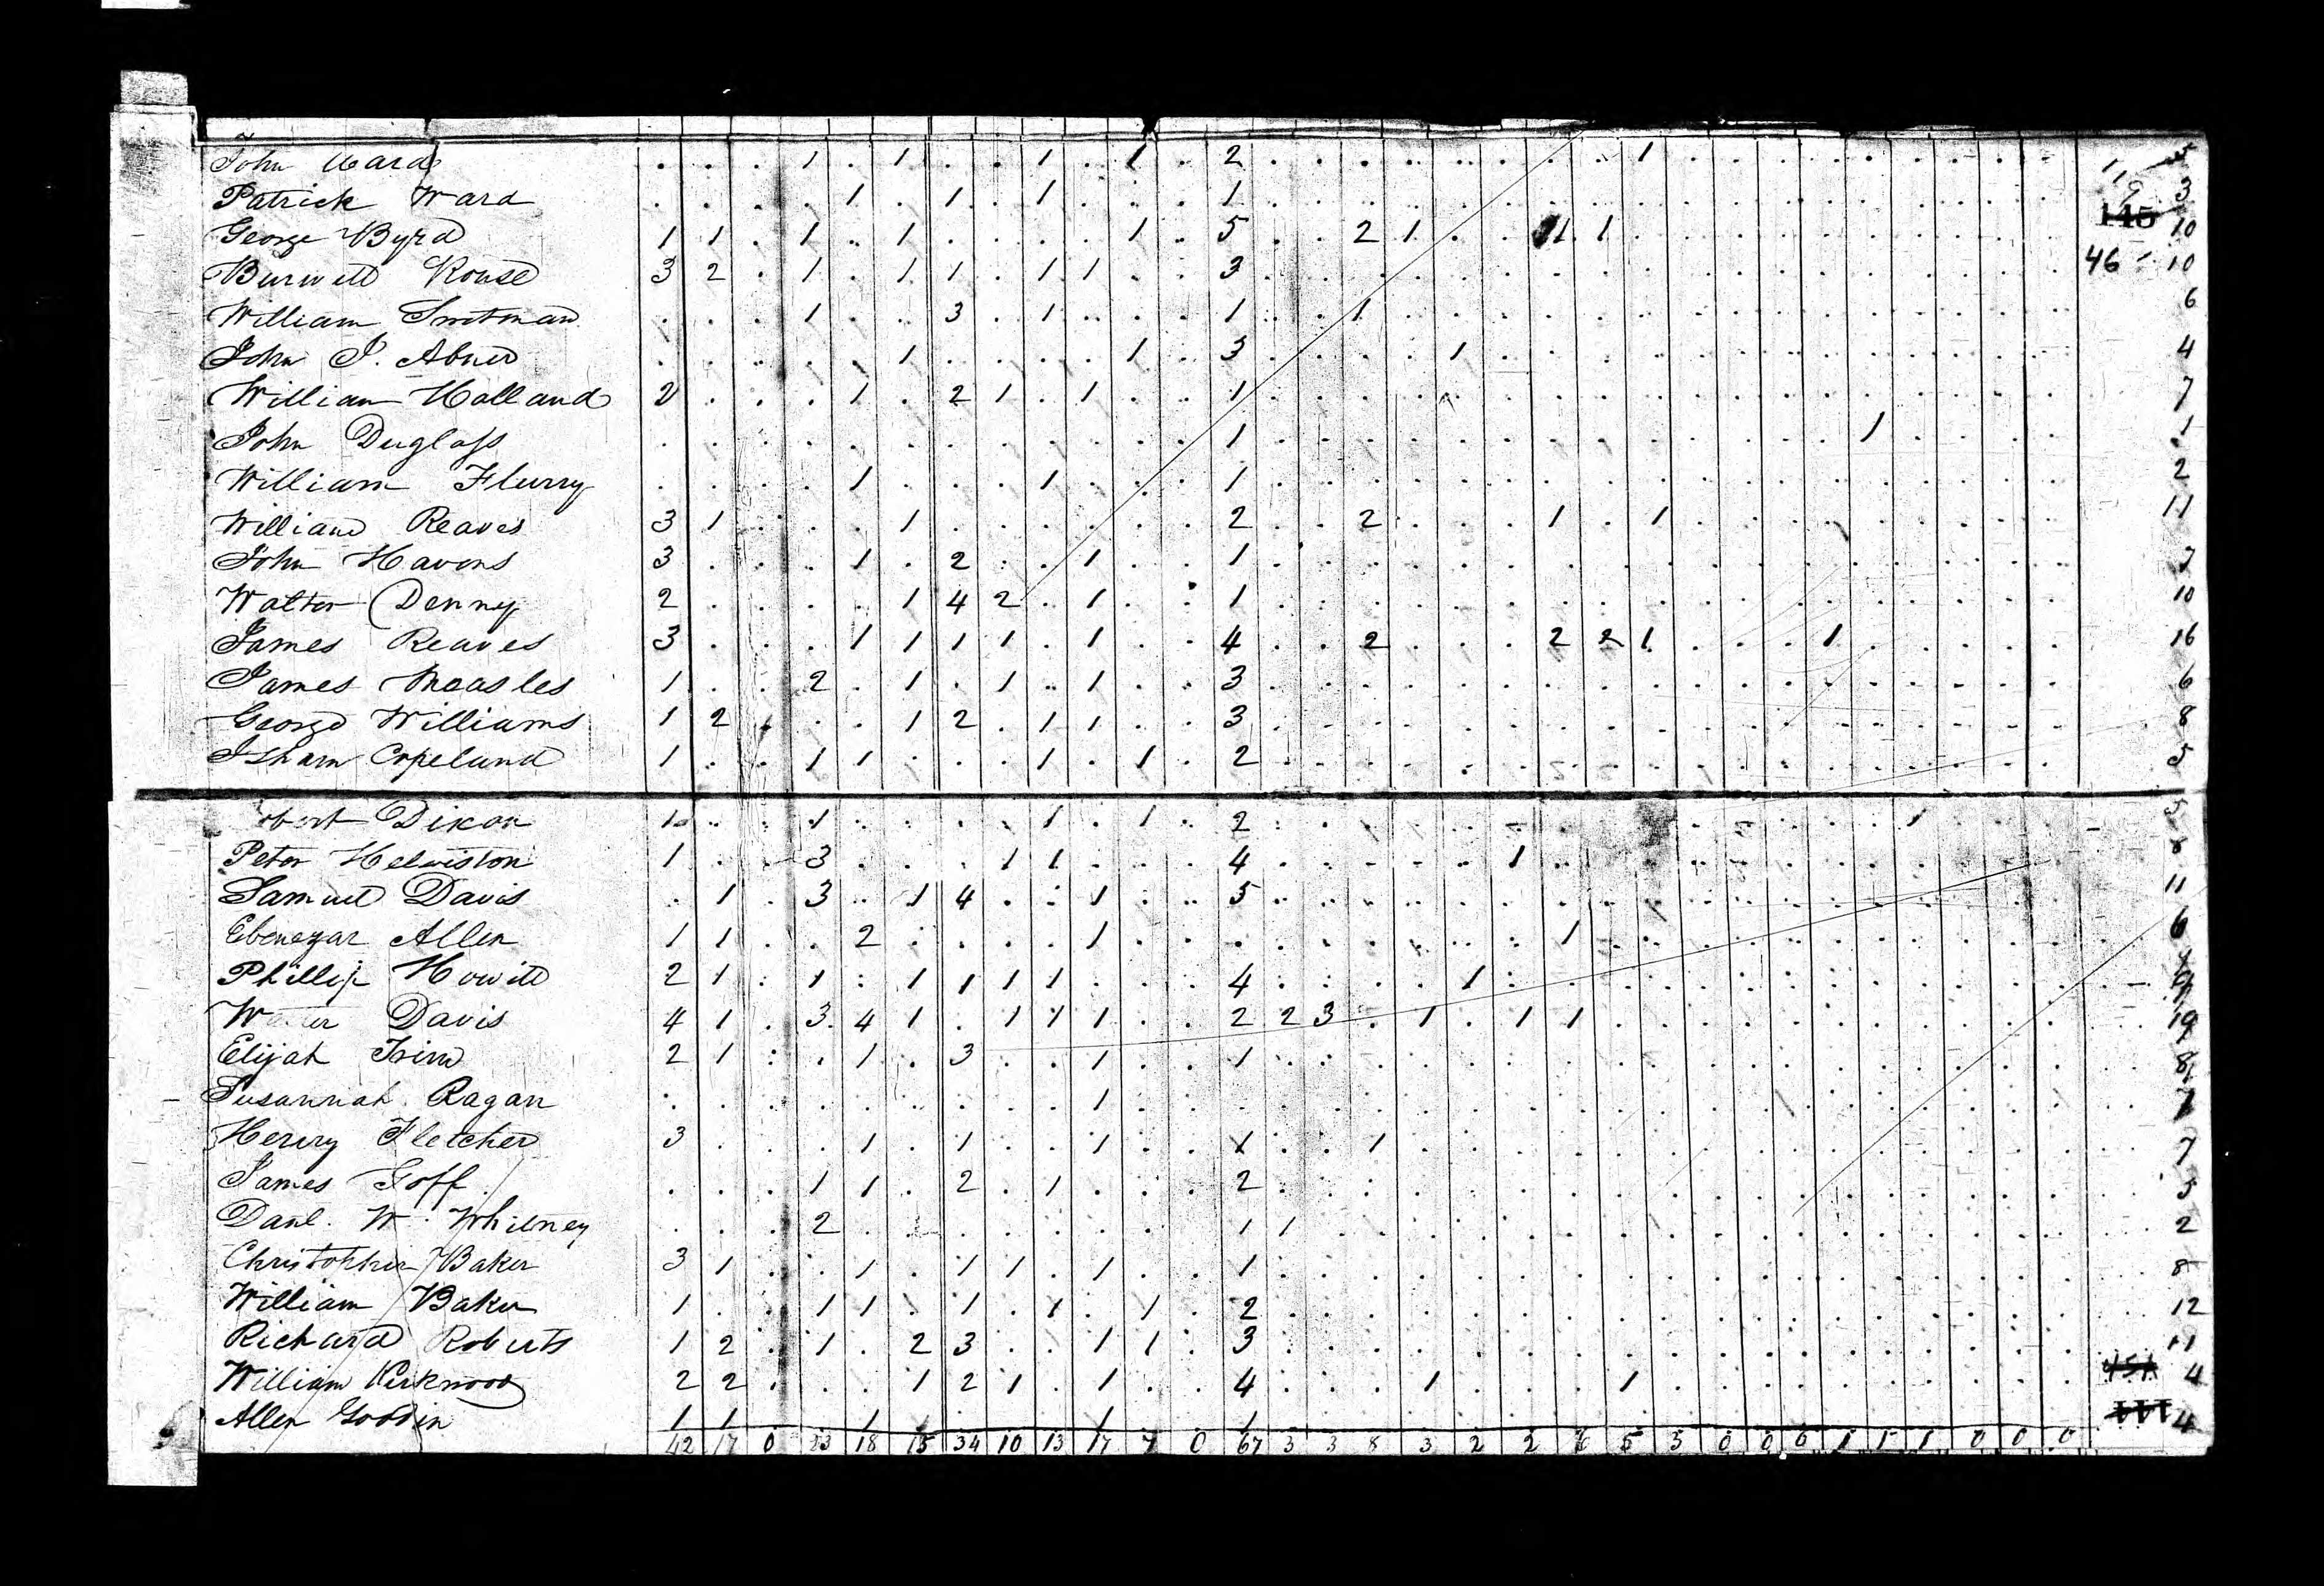 John Ward . . . 1 . 1 . . 1 . 1 . 2 . . . . . . . . 1 . . . . . . . . . 5
Patrick Ward . . . . 1 . 1 . 1 . . . 1 . . . . . . . . . . . . . . . . . . 3
George Byrd 1 1 . 1 . 1 . . . . 1 . 5 . . 2 1 . . 1 1 . . . . . . . . . . 145 10
3 2 . 1 . 1 1 . 1 1 . . 3 . . . . . . . . . . . . . . . . . . 46 10
William . . . 1 . . 3 . 1 . . . 1 . . 1 . . . . . . . . . . . . . . . 6
John J. Abner . . . . . 1 . . . . 1 . 3 . . . . 1 . . . . . . . . . . . . . 4
William Holland 2 . . . 1 . 2 1 . 1 . . 1 . . . . . . . . . . . . . . . . . . 7
John Duglass . . . . . . . . . . . . 1 . . . . . . . . . . . . . 1 . . . . 1
William Flurry . . . . 1 . . . 1 . . . 1 . . . . . . . . . . . . . . . . . . 2
William Reaves 3 1 . . . 1 . . . . . . 2 . . 2 . . . 1 . 1 . . . . . . . . . 11
John Havens 3 . . . 1 . 2 . . 1 . . 1 . . . . . . . . . . . . . . . . . . 7
Walter Denny 2 . . . . 1 4 2 . 1 . . 1 . . . . . . . . . . . . . . . . . . 10
James Reaves 3 . . . 1 1 1 1 . 1 . . 4 . . 2 . . . 2 2 1 . . . 1 . . . . . 16
James Measles 1 . . 2 . 1 . 1 . 1 . . 3 . . . . . . . . . . . . . . . . . . 6
George Williams 1 2 . . . 1 2 . 1 1 . . 3 . . . . . . . . . . . . . . . . . . 8
Isham Copeland 1 . . 1 1 . . . 1 . 1 . 2 . . . . . . . . . . . . . . . . . . 5
Dixon 1 . . 1 . . . . 1 . 1 . 2 . . . . . . . . . . . . . . 1 . . . 5
Peter Helveston 1 . . 3 . . . 1 1 . . . 4 . . . . . 1 . . . . . . . . . . . . 8
Samuel Davis . 1 . 3 . 1 4 . . 1 . . 5 . . . . . . . . . . . . . . . . . . 11
Ebenezar Allen 1 1 . . 2 . . . . 1 . . . . . . . . . 1 . . . . . . . . . . . 6
Phillip 2 1 . 1 . 1 1 1 1 . . . 4 . . . . 1 . . . . . . . . . . . . .
Davis 4 1 . 3 4 1 . 1 1 1 . . 2 2 3 . 1 . 1 1 . . . . . . . . . . . 19
Elijah 2 1 . . 1 . 3 . . 1 . . 1 . . . . . . . . . . . . . . . . . . 8
Susannah Ragan . . . . . . . . . 1 . . . . . . . . . . . . . . . . . . . . . 1
Henry Fletcher 3 . . . 1 . 1 . . 1 . . 1 . . 1 . . . . . . . . . . . . . . . 7
James Goff . . . 1 1 . 2 . 1 . . . 2 . . . . . . . . . . . . . . . . . . 5
Danl. W. Whitney . . . 2 . . . . . . . . 1 1 . . . . . . . . . . . . . . . . . 2
Christopher Baker 3 1 . . 1 . 1 1 . 1 . . 1 . . . . . . . . . . . . . . . . . . 8
William Baker 1 . . 1 1 . 1 . 1 . 1 . 2 . . . . . . . . . . . . . . . . . . 12
Richard Roberts 1 2 . 1 . 2 3 . . 1 1 . 3 . . . . . . . . . . . . . . . . . . 11
William Kirkwood 2 2 . . . 1 2 1 . 1 . . 4 . . . 1 . . . 1 . . . . . . . . . . 4
Allen Goodin 1 1 . . 1 . . . . 1 . . 1 . . . . . . . . . . . . . . . . . . 4
42 17 0 23 18 15 34 10 13 17 7 0 67 3 3 8 3 2 2 6 5 3 0 0 0 1 1 1 0 0 0